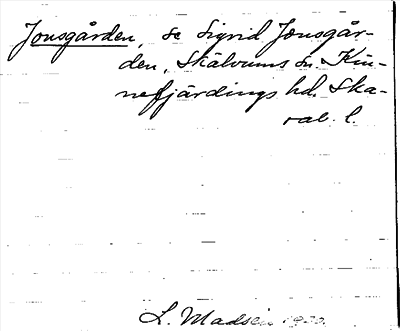 Jonsgården, se Sigrid Jonsgår-
den, Skälvums sn. Kin-
nefjärdings hd. Ska-
rab. l.
L. Madsén 1930.